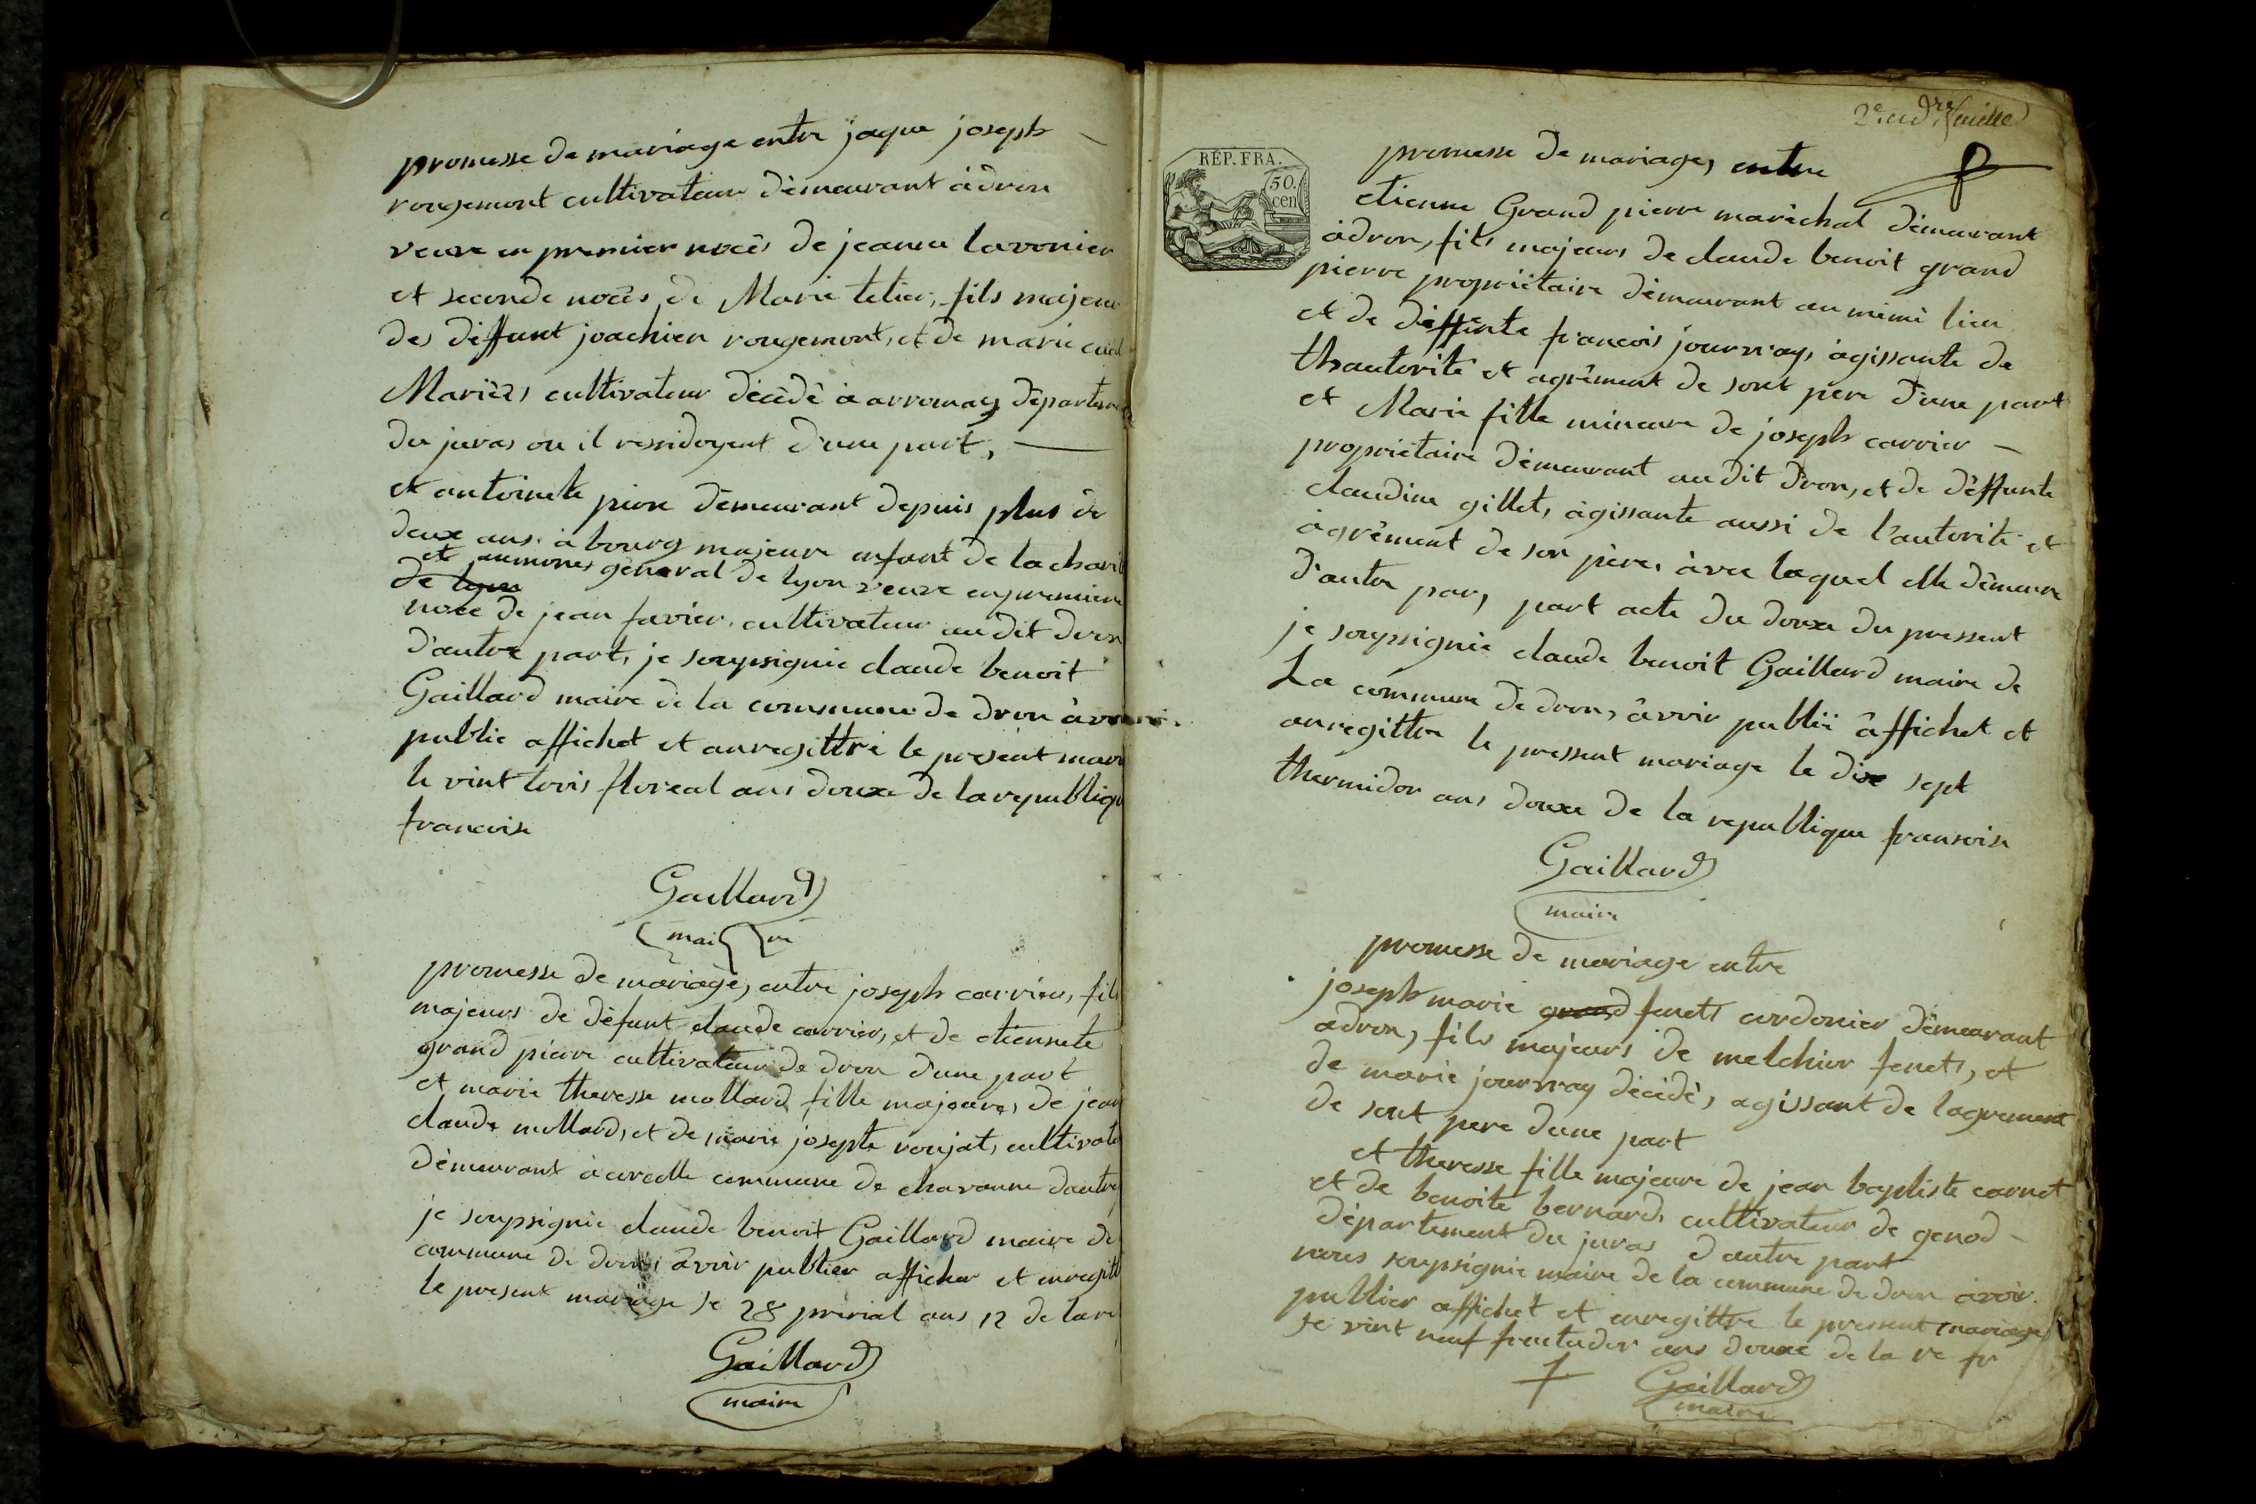 promesse de mariage entre jaque joseph
rougemont cultivateur démeurant à dron
veuve en premier nocês de jeanne lavonier
et seconde nocês de Marie tetier, fils majeur
des déffunt joachien rougemont, et de marie
Mariêês cultivateur décêdê à arromas départeme
du juras ou il ressidoyent d'une part,
et antoinete piere démeurant depuis plus de
deux ans à bourg majeure enfant de la charit
et aumones général de lyon veuve en premiere
de lyon
noce de jean favier cultivateur au dit dron
d'autre part, je soupsignie claude benoit
Gaillard maire de la commune de dron àvoir
publie affichet et anregittré le présent mari
le vint trois floreal ans douxe de la republiqu
francoise
Gaillard
maire
promesse de mariage, entre joseph carrier, fils
majeurs de défunt claude carrier, et de etiennete
grand piere cultivateur de dron d'une part
et marie theresse mollard fille majeure, de jean
claude mollard, et de marie josephte roujat, cultivate
démeurant à curcelle commune de chavanne dautre
je soupsignie claude benoit Gaillard maire de
commune de dron, àvoir publier afficher et enregitt
le present mariage le 28 prérial ans 12 de la re
Gaillard
maire
2e feuille
RÉP. FRA.
50.
cen
promesse de mariage, entre
etienne Grand pierre maréchal démeurant
àdron, fils majeurs de claude benoit grand
pierre propriétaire démeurant au mêmê lieu
et de défûnte francois journay, àgissante de
thautorité et agrêment de sont père d'une part
et Marie fille mineure de joseph carrier
propriétaire démeurant au dit dron, et de déffunte
claudine gillet, àgissante aussi de l'autorité et
àgrêment de son père, àvec laquel elle démeure
d'autre par, part acte du douxe du pressent
je soupsignie claude benoit Gaillard maire de
La commune de dron, àvoir publié àffichet et
anregittre le pressent mariage le dix sept
thermidor ans douxe de la republique fransoise
Gaillard
maire
promesse de mariage entre
joseph marie grand fenets cordonier démeurant
adron, fils majeurs de melchior fenets, et
de marie journay décédé, agissant de lagrement
de sont pere dune part
et theresse fille majeure de jean baptiste carnet
et de benoite bernard, cultivateur de genod
département du juras d autre part
nous soupsignie maire de la commune de dron àvoir
publier affichet et enregittre le pressent mariage
le vint neuf fructudor ans douxe de la re fr
Gaillard
maire